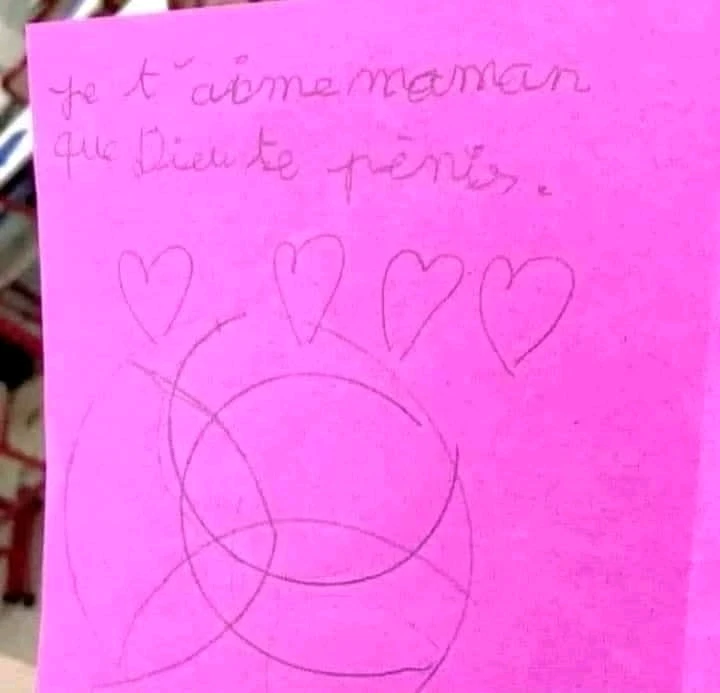 je t'aime maman
que Dieu te pènis.